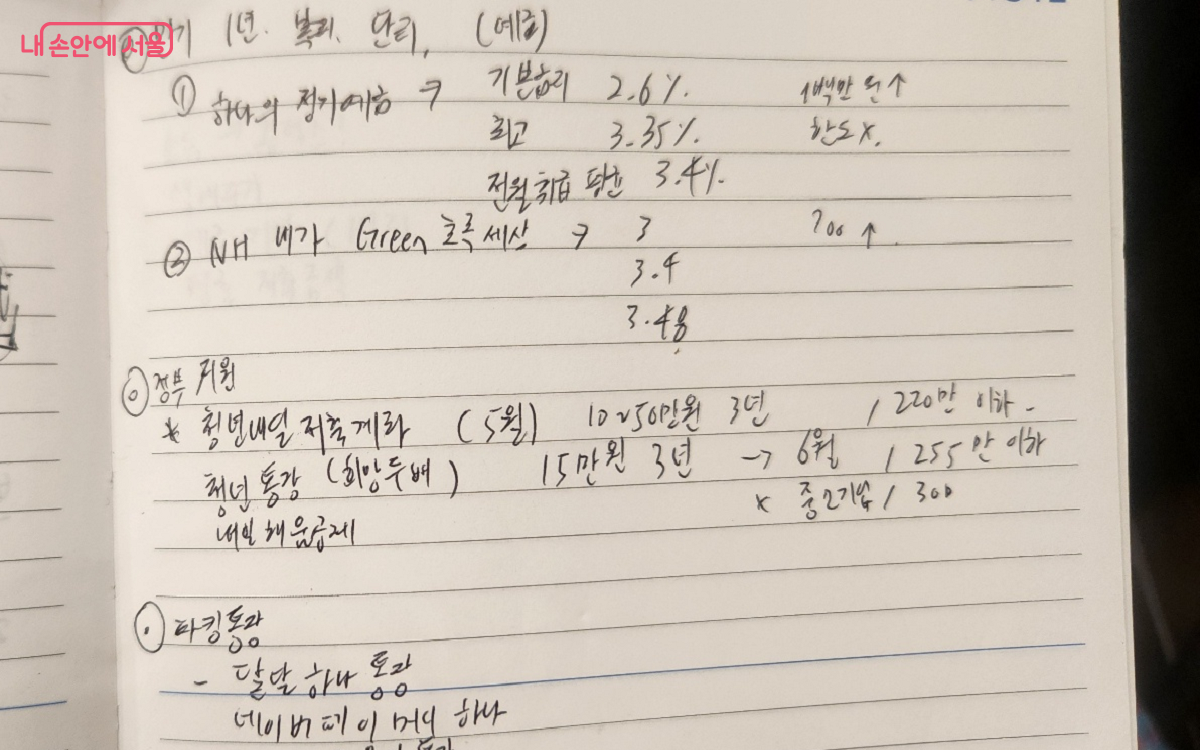 내 손안에 서울
만기 1년. 복리. 단리, (예금)
① 하나의 정기예금 → 기본금리 2.6% 1백만 원↑
최고 3.35% 한도x.
전월취급 평균 3.4%.
② NH 내가 Green 초록세상 → 3 300 ↑.
3.4
3.48
정부 지원
* 청년내일저축계좌 (5월) 10~50만원 3년 / 220만 이하.
청년통장 (희망두배) 15만원 3년 → 6월 / 255만 이하
내일채움공제 * 중소기업 / 300
파킹통장
- 달달 하나 통장
네이버페이 머니 하나